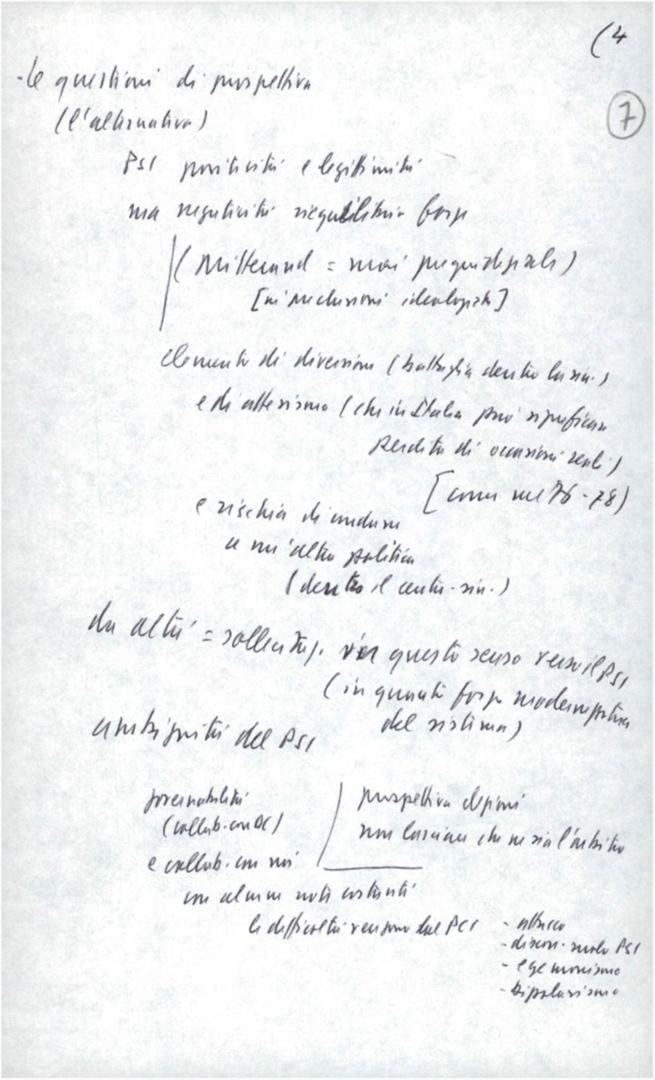 (4
7
- le questioni di prospettiva
(l'alternativa)
PSI positività e legittimità
ma negatività riequilibrio forze
(Mitterand = mai pregiudiziali)
[né preclusioni ideologiche]
elemento di diversione (battaglia dentro la sin.)
e di attesismo (che in Italia può significare
perdita di occasioni reali)
[come nel 76-78)
e rischia di condurre
a un'altra politica
(dentro il centro-sin.)
da altri = sollecitaz. in questo senso verso il PSI
(in quanto forza modernizzatrice
del sistema)
ambiguità del PSI
governabilità
(collab. con DC)
e collab. con noi
prospettiva elezioni
non lasciare che ne sia l'arbitro
con alcune note costanti
le difficoltà vengono dal PCI
- attacco
- discon. ruolo PSI
- egemonismo
- bipolarismo